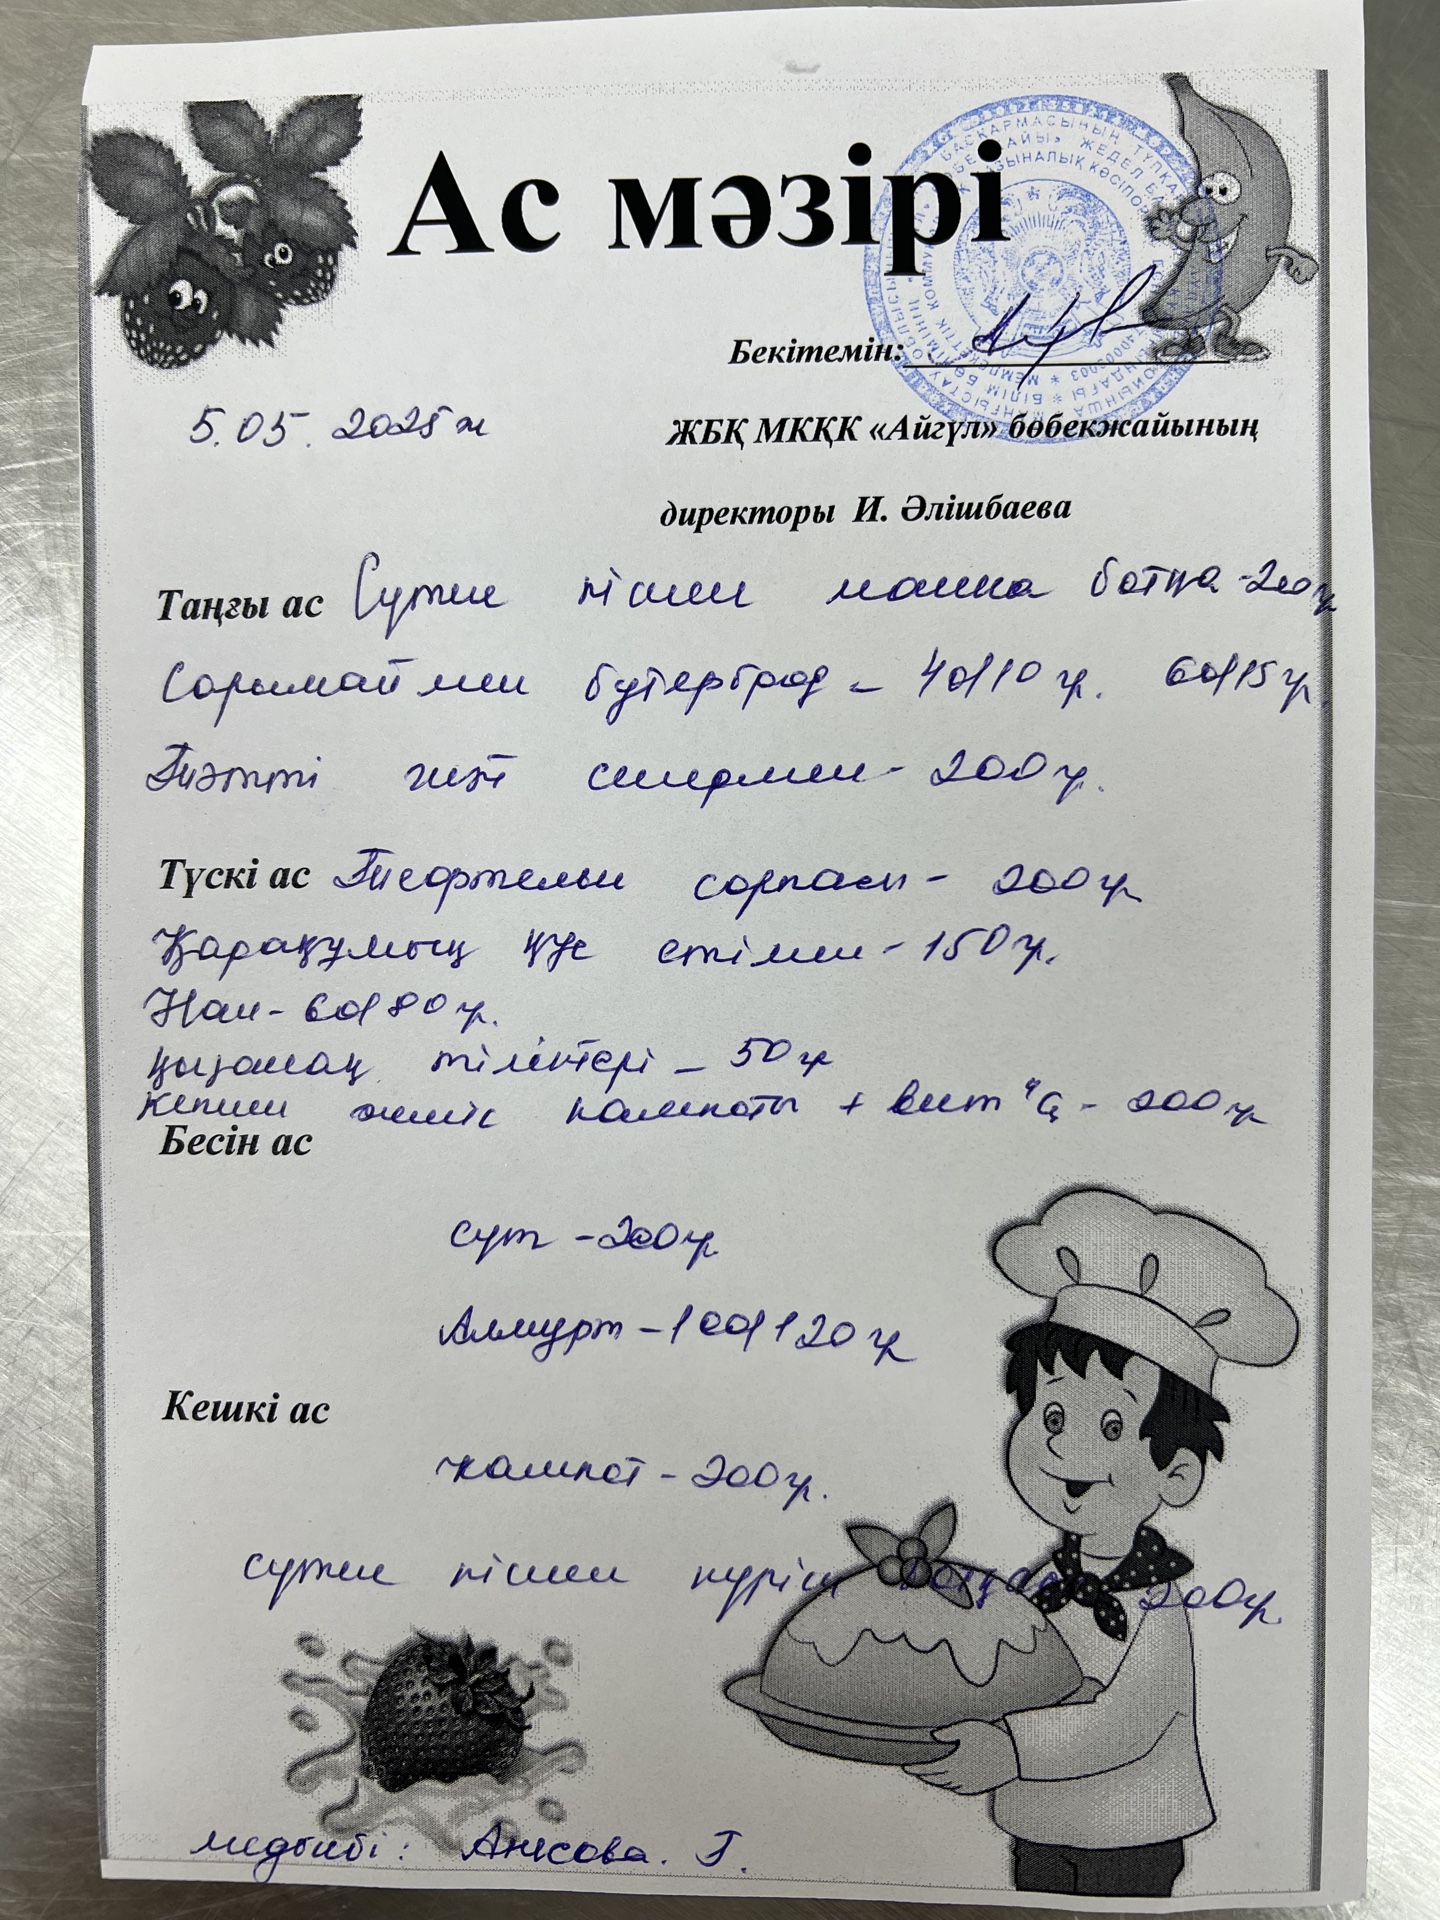 Ас мәзірі
Бекітемін:
5.05.2025ж
ЖБҚ МКҚК «Айгүл» бөбекжайының
директоры И. Әлішбаева
Таңғы ас Сүтпен піскен манка ботқа - 200гр
Сарымаймен бутерброд - 40/10 гр. 60/15гр
Тәтті шәй сүтпен - 200гр.
Түскі ас Тефтелы сорпасы - 200гр
Қарақұмық құс етімен - 150гр.
Нан - 60/80гр.
қызанақ тіліктері - 50гр
кепкен жеміс компоты + вит "С - 200гр
Бесін ас
сүт - 200гр
Алмұрт - 100/120гр
Кешкі ас
компот - 200гр.
сүтпен піскен күріш ботқасы 200гр.
медбикесі: Анесова. Г.